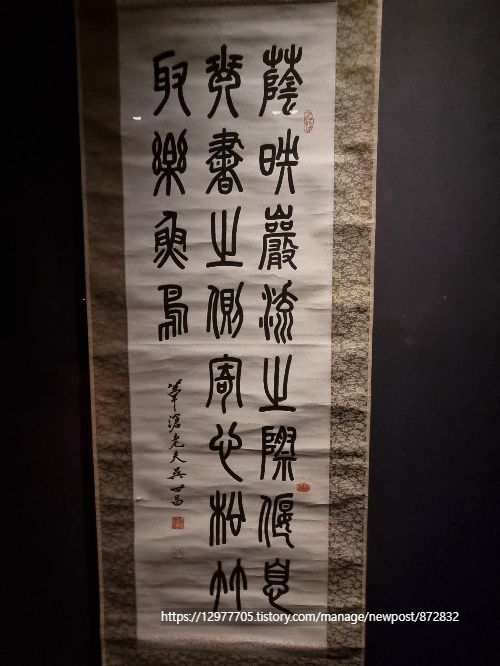 蔭映巖流之際偃息
琴書之側寄心松竹
取樂魚鳥
葦滄老夫吳世昌
https://12977705.tistory.com/manage/newpost/872832